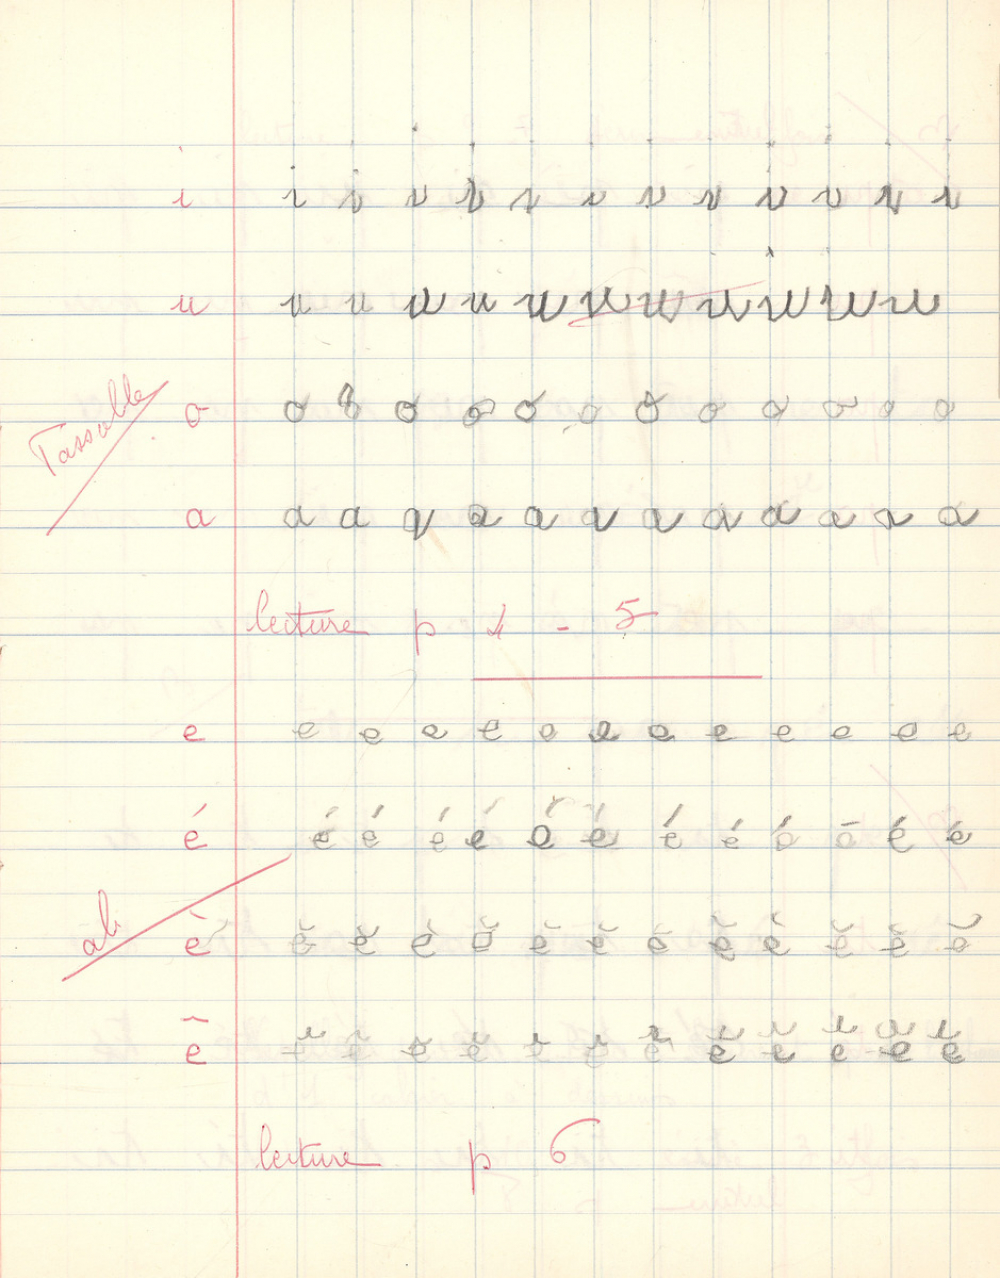 i i i i i i i i i i i i i
u u u u u u u u u u u u
o o o o o o o o o o o o o
Passable
a a a a a a a a a a a a a
lecture p 4 - 5
e e e e e e e e e e e e e
é é é é é é é é é é é é é
ab.
è è è è è è è è è è è è è
ê ê ê ê ê ê ê ê ê ê ê ê ê
lecture p 6